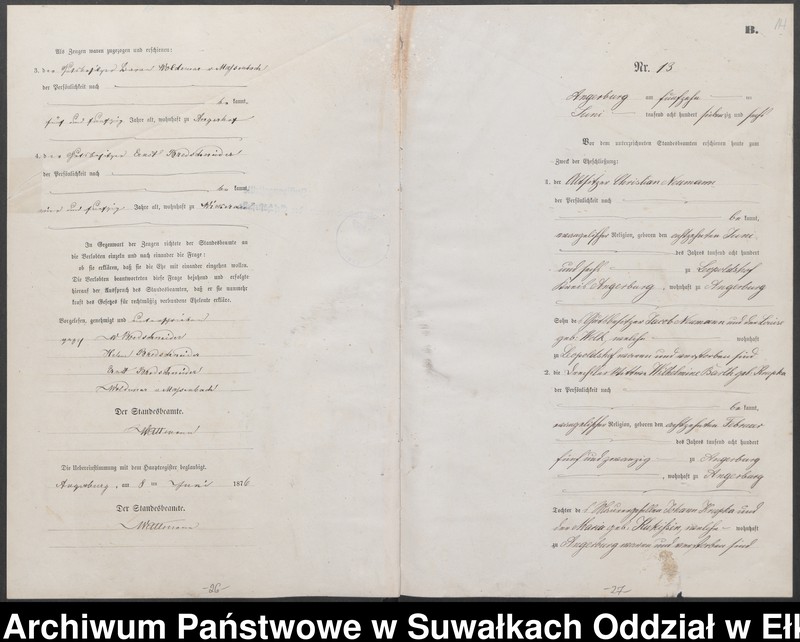 Als Zeugen waren zugezogen und erschienen:
3. der Gutsbesitzer Baron Woldemar v. Massenbach
der Persönlichkeit nach
be kannt,
fünf und fünfzig Jahre alt, wohnhaft zu Angerhof
4. der Gutsbesitzer Ewald Bredschneider
der Persönlichkeit nach
be kannt,
und fünfzig Jahre alt, wohnhaft zu
In Gegenwart der Zeugen richtete der Standesbeamte an
die Verlobten einzeln und nach einander die Frage:
ob sie erklären, daß sie die Ehe mit einander eingehen wollen.
Die Verlobten beantworteten diese Frage bejahend und erfolgte
hierauf der Ausspruch des Standesbeamten, daß er sie nunmehr
kraft des Gesetzes für rechtmäßig verbundene Eheleute erkläre.
Vorgelesen, genehmigt und unterschrieben
Bredschneider
Helene Bredschneider
Bredschneider
Woldemar v Massenbach
Der Standesbeamte.
Die Uebereinstimmung mit dem Hauptregister beglaubigt.
Angerburg, am 8 ten Juni 1876
Der Standesbeamte.
-26-
B.
Nr. 13
Angerburg am fünfzehn ten
Juni tausend acht hundert siebenzig und sechs
Vor dem unterzeichneten Standesbeamten erschienen heute zum
Zweck der Eheschließung:
1. der Altsitzer Christian Neumann
der Persönlichkeit nach
be kannt,
evangelischer Religion, geboren den achtzehnten Juni
des Jahres tausend acht hundert
und sechs zu Leopoldshof
Kreis Angerburg, wohnhaft zu Angerburg
Sohn des Wirthbesitzer Jacob Neumann und der Louise
geb. Noth, welche wohnhaft
zu Leopoldshof waren und verstorben sind
2. die Drechsler Wittwe Wilhelmine Barth geb. Krupka
der Persönlichkeit nach
be kannt,
evangelischer Religion, geboren den achtzehnten Februar
des Jahres tausend acht hundert
fünf und zwanzig zu Angerburg
, wohnhaft zu Angerburg
Tochter des Maurergesellen Johann Krupka und
der Maria geb. welche wohnhaft
zu Angerburg waren und verstorben sind
-27-
Archiwum Państwowe w Suwałkach Oddział w Eł